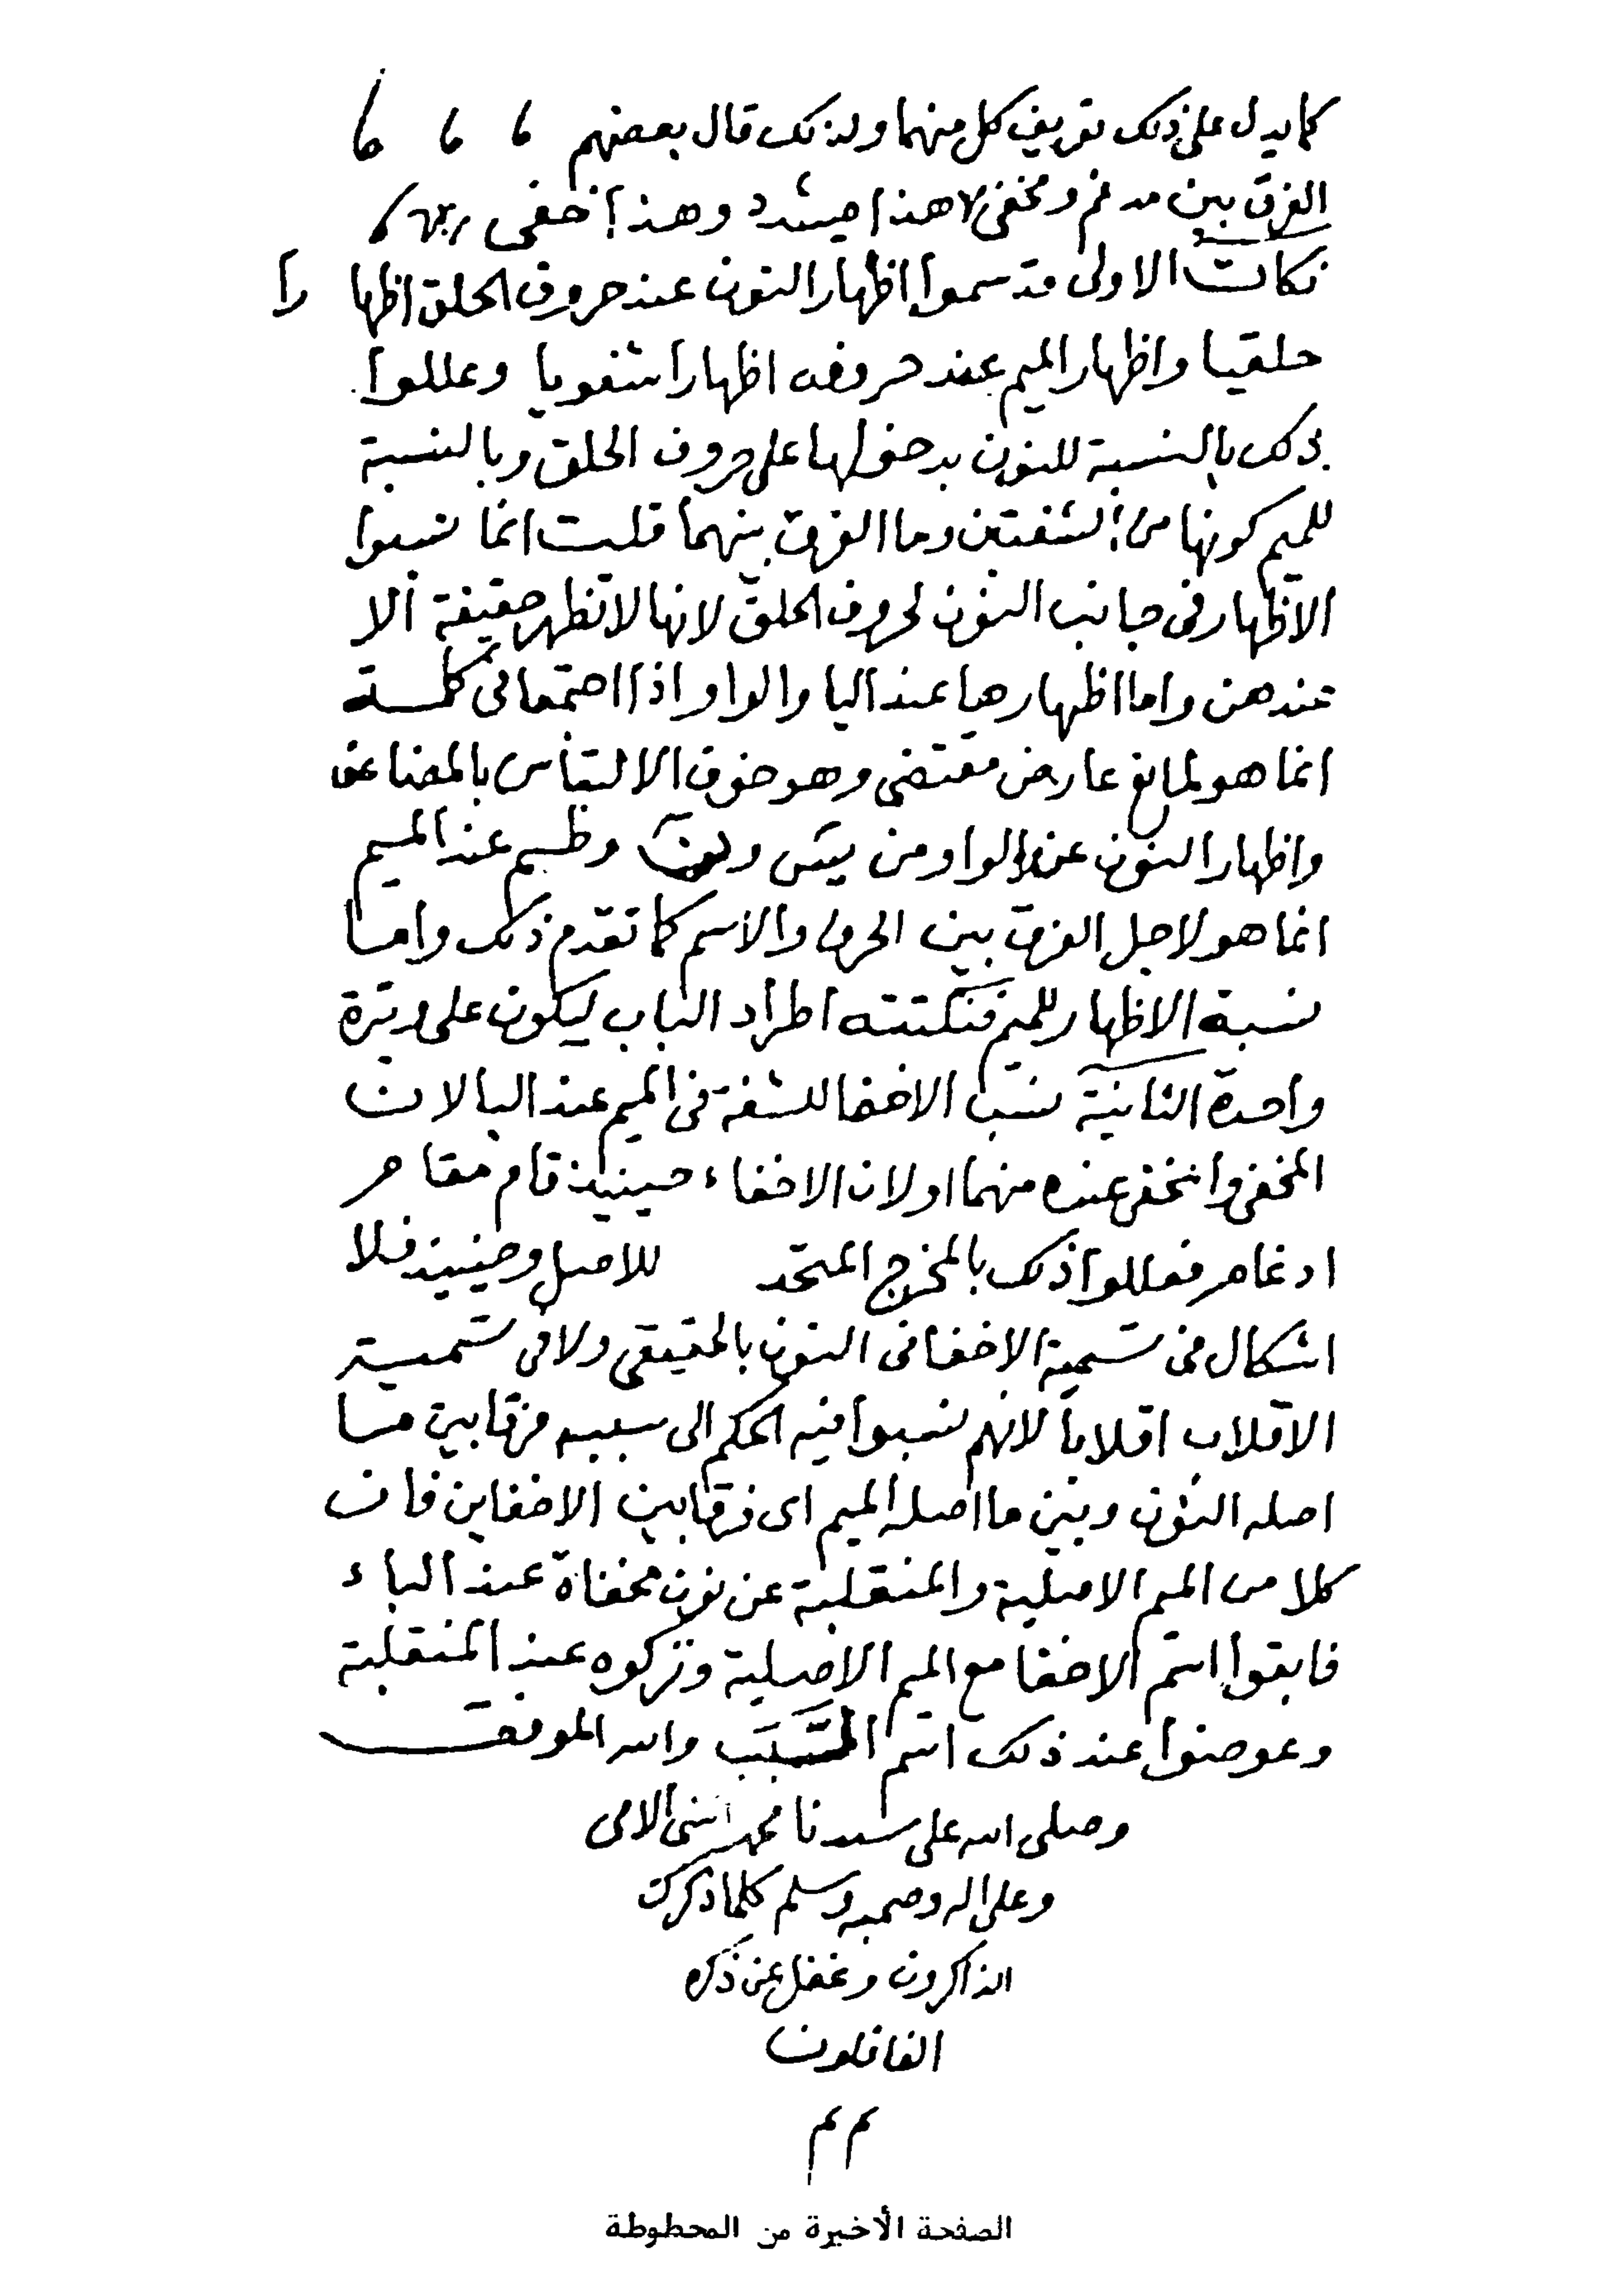 كما يدل على ذلك تعريف كل منهما ولذلك قال بعضهم
الفرق بين مدغم ومخفى لا هذا مشدد وهذا خفى
نكات الاولى قد سموا اظهار النون عند حروف الحلق اظها را
حلقيا واظهار الميم عند حروفه اظهارا شفويا وعللوا
ذلك بالنسبة للنون بدخولها على حروف الحلق وبالنسبة
للميم كونها من الشفتين وما الفرق بينهما قلت انما نسبوا
الاظهار فى جانب النون لحروف الحلق لانها لا تظهر حقيقة الا
عندهن واما اظهارها عند اليا والواو اذا اجتمعا فى كلمة
انما هو لمانع عارض مقتضى وهو خوف الالتباس بالمضاعف
واظهار النون عند الواو من يس ون وطسم عند الميم
انما هو لاجل الفرق بين الحرف والاسم كما تقدم ذلك واما
نسبة الاظهار للميم فنكتته اطراد الباب ليكون على وتيرة
واحدة الثانية نسب الاخفا للشفة فى الميم عند البا لان
المخفى والمخفى عنده منهما او لان الاخفاء حينيذ قام مقام
ادغام فعللوا ذلك بالمخرج المتحد للاصل وحينيذ فلا
اشكال فى تسمية الاخفا فى النون بالحقيقى ولا فى تسمية
الاقلاب اقلابا لانهم نسبوا فيه الحكم الى سببه فرقا بين ما
اصله النون وبين ما اصله الميم اى فرقا بين الاخفاين فان
كلا من الميم الاصلية والمنقلبة عن نون مخفاة عند الباء
فابقوا اسم الاخفا مع الميم الاصلية وتركوه عند المنقلبة
وعوضوا عند ذلك اسم المسبب والله الموفق
وصلى الله على سيدنا محمد النبى الامى
وعلى اله وصحبه وسلم كلما ذكرك
الذاكرون وغفل عن ذكره
الغافلون
م م
الصفحة الأخيرة من المخطوطة